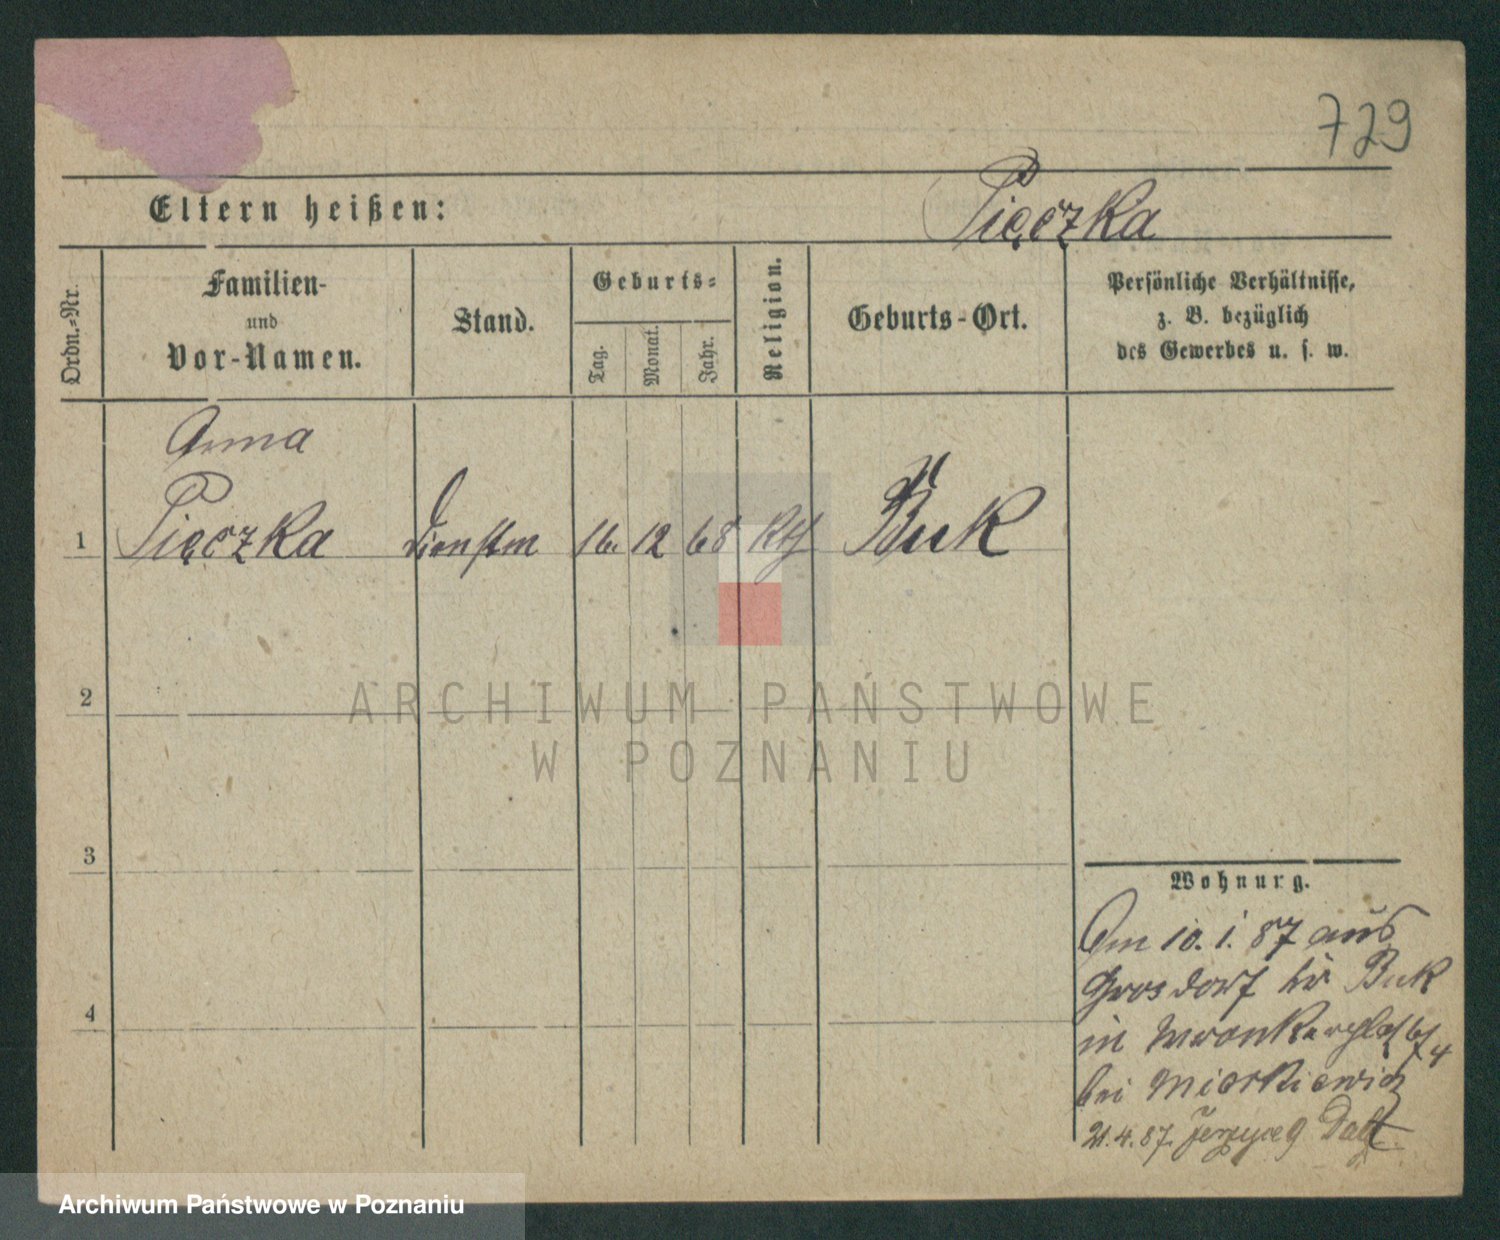 729
Eltern heißen:
Pięczka
Ordn.-Nr.
Familien-
und
Vor-Namen.
Stand.
Geburts-
Tag.
Monat.
Jahr.
Religion.
Geburts-Ort.
Persönliche Verhältnisse,
z. B. bezüglich
des Gewerbes u. s. w.
Anna
1 Pięczka Dienstm 16. 12 68 Kth Buk
2
3
4
ARCHIWUM PAŃSTWOWE
W POZNANIU
Wohnung.
Am 10. 1. 87 aus
Grosdorf Buk
in Wronker
bei
21. 4. 87.
Archiwum Państwowe w Poznaniu